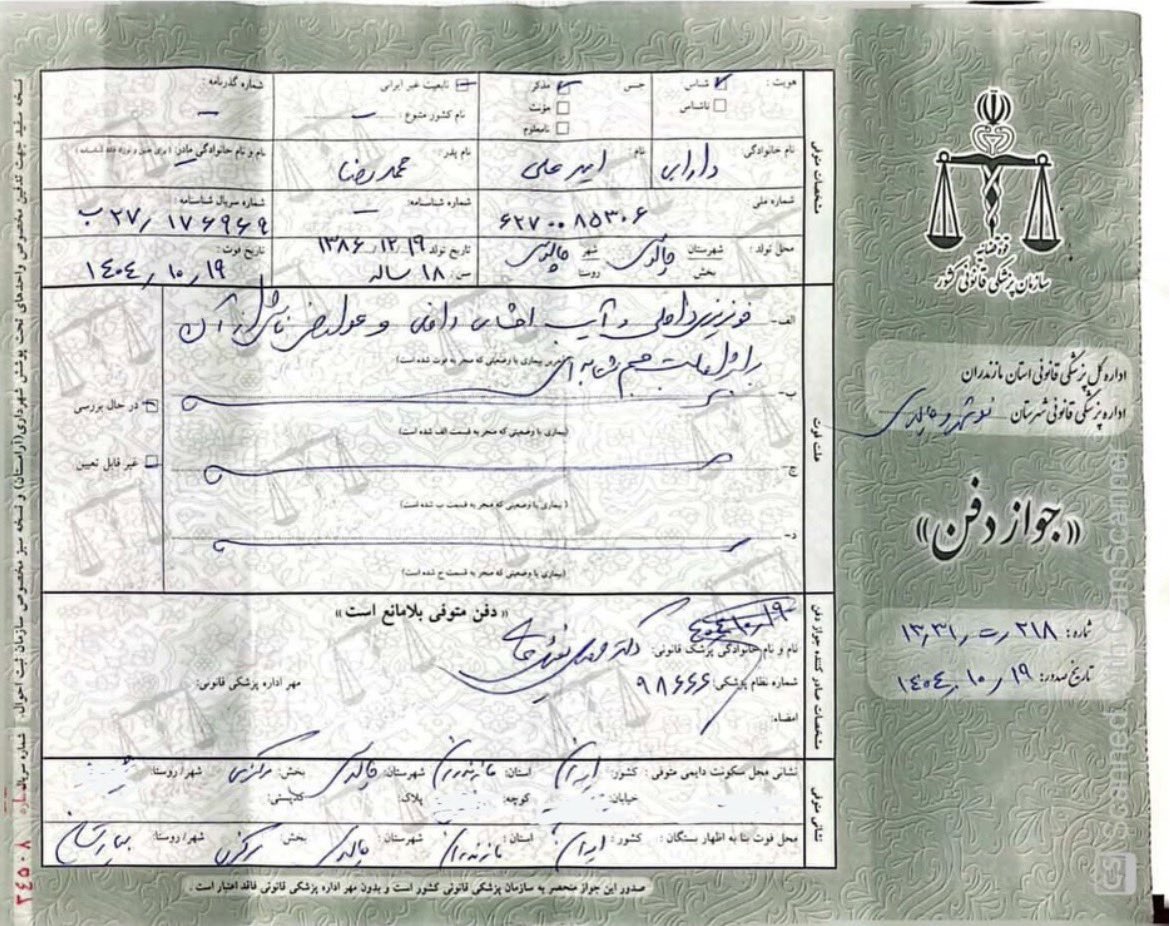 قوه قضائیه
سازمان پزشکی قانونی کشور
اداره کل پزشکی قانونی استان مازندران
اداره پزشکی قانونی شهرستان نوشهر و چالوس
«جواز دفن»
شماره: ۲۱۸ / ت / ۱۳,۳۱
تاریخ صدور: ۱۹ / ۱۰ / ۱۴۰۴
مشخصات متوفی
هویت: شناس ناشناس
جنس: مذکر مونث نامعلوم
تابعیت غیر ایرانی
نام کشور متبوع:
شماره گذرنامه:
نام خانوادگی: دارابی
نام: امیر علی
نام پدر: محمدرضا
نام و نام خانوادگی مادر:
شماره ملی: ۶۲۷۰۰۸۵۳۰۶
شماره شناسنامه: –
شماره سریال شناسنامه: ب ۲۷ / ۱۷۶۹۶۹
محل تولد: شهرستان چالوس شهر چالوس
بخش روستا
تاریخ تولد: ۱۹ / ۱۲ / ۱۳۸۶
سن: ۱۸ ساله
تاریخ فوت: ۱۹ / ۱۰ / ۱۴۰۴
علت فوت
الف- خونریزی داخلی و آسیب احشای داخلی و عوارض ناشی از آن
بر اثر اصابت جسم پرتابه ای
(آخرین بیماری یا وضعیتی که منجر به فوت شده است)
ب-
(بیماری یا وضعیتی که منجر به قسمت الف شده است)
ج-
(بیماری یا وضعیتی که منجر به قسمت ب شده است)
د-
(بیماری یا وضعیتی که منجر به قسمت ج شده است)
در حال بررسی
غیر قابل تعیین
مشخصات صادر کننده جواز دفن
«دفن متوفی بلامانع است»
نام و نام خانوادگی پزشک قانونی: دکتر
شماره نظام پزشکی: ۹۸۶۶۶
امضاء:
مهر اداره پزشکی قانونی:
نشانی متوفی
نشانی محل سکونت دایمی متوفی: کشور: ایران استان: مازندران شهرستان: چالوس بخش: مرکزی شهر/روستا:
خیابان: کوچه: پلاک: کدپستی:
محل فوت بنا به اظهار بستگان: کشور: ایران استان: مازندران شهرستان: چالوس بخش: مرکزی شهر/روستا: بیمارستان
صدور این جواز منحصر به سازمان پزشکی قانونی کشور است و بدون مهر اداره پزشکی قانونی فاقد اعتبار است.
نسخه سفید جهت تدفین مخصوص واحدهای تحت پوشش شهرداری(آرامستان) و نسخه سبز مخصوص سازمان ثبت احوال.
شماره سریال
۳۴۵۰۸
Scanned with CamScanner